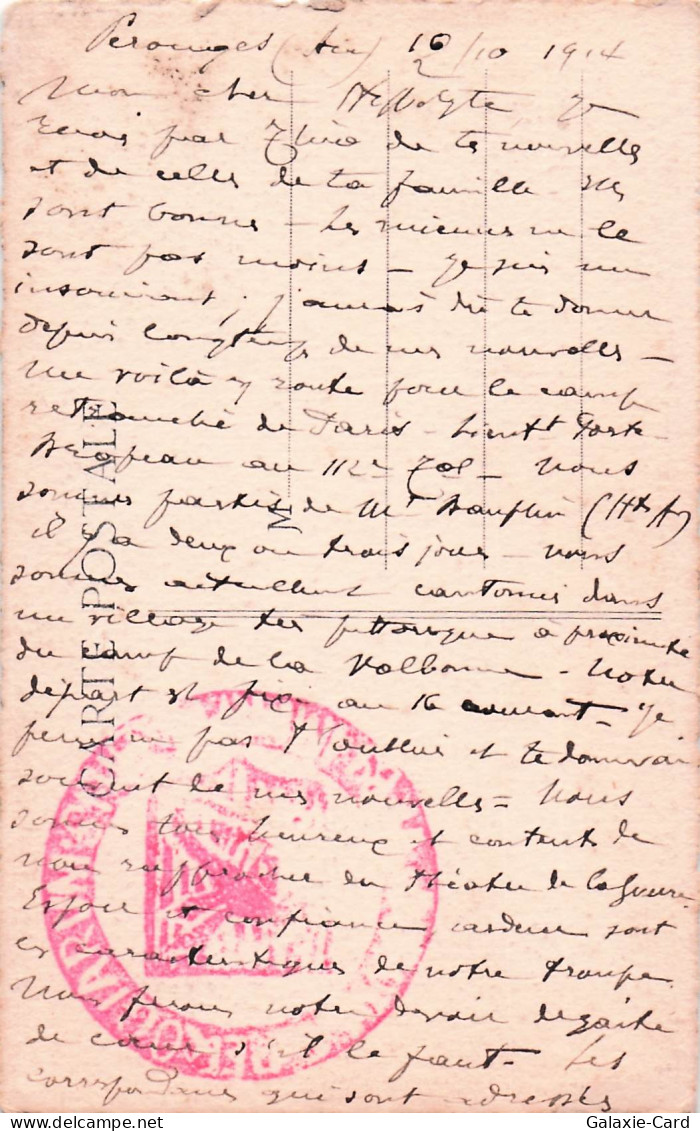 Perouges (Ain) 10/10 1914
Mon cher Hippolyte Je
reçois par de tes nouvelles
et de celles de ta famille. Elles
sont bonnes – Les miennes ne le
sont pas moins – Je suis un
insouciant, j'aurais dû te donner
depuis longtemps de mes nouvelles –
Me voilà en route pour le camp
retranché de Paris – Lieut Porte-
Drapeau au 112e – Nous
sommes partis de Mt Dauphin (Htes A)
il y a deux ou trois jours – nous
sommes actuellent cantonnés dans
un village très pittoresque à proximité
du camp de la Valbonne – Notre
départ est fixé au 16 courant – Je
ne pas t'oublier et te donnerai
souvent de mes nouvelles – Nous
sommes tous heureux et contents de
nous rapprocher du théâtre de la guerre
Espoir et confiance ardeur sont
es caractéristiques de notre troupe
Nous ferons notre devoir de
de cœur s'il le faut – Les
correspondances qui sont adressés
CARTE POSTALE
M
© Galaxie-Card